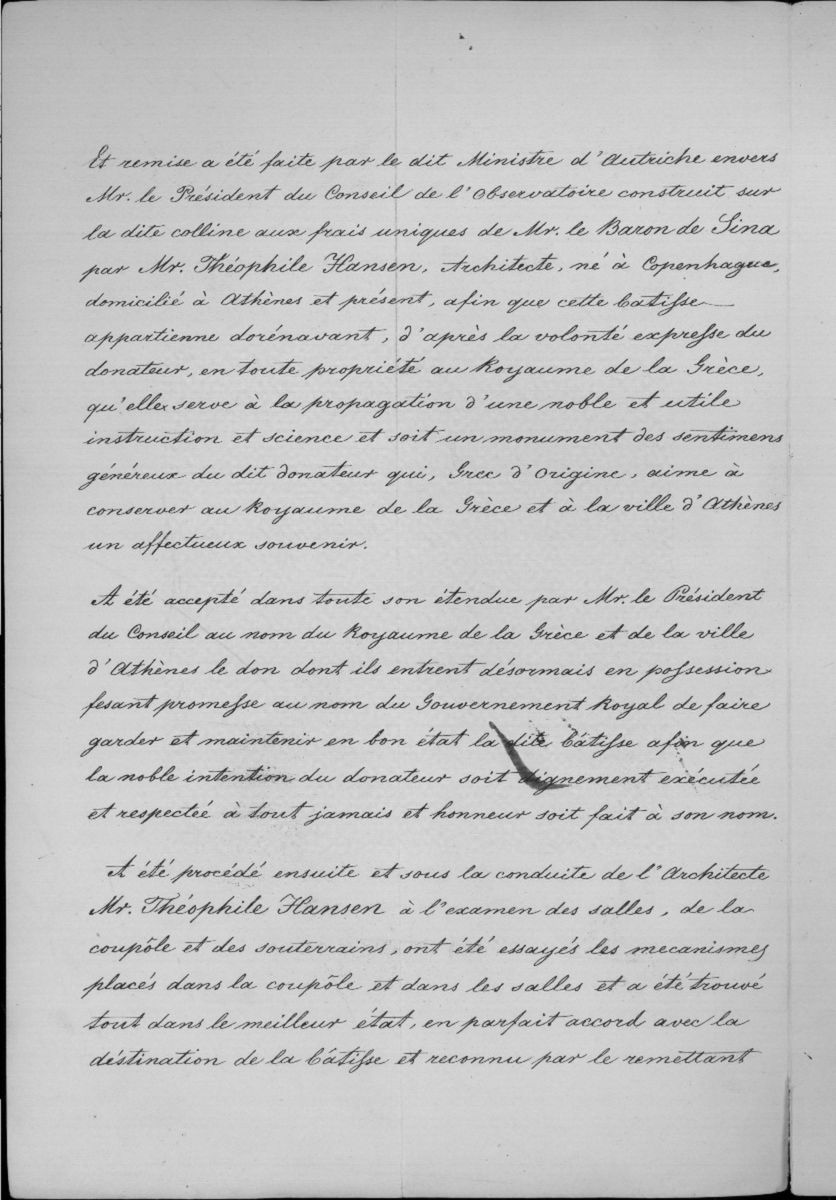 Et remise a été faite par le dit Ministre d'Autriche envers
Mr. le Président du Conseil de l'Observatoire construit sur
la dite colline aux frais uniques de Mr. le Baron de Sina
par Mr. Théophile Hansen, Architecte, né à Copenhague,
domicilié à Athènes et présent, afin que cette batisse
appartienne dorénavant, d'après la volonté expresse du
donateur, en toute propriété au Royaume de la Grèce,
qu'elle serve à la propagation d'une noble et utile
instruction et science et soit un monument des sentimens
généreux du dit donateur qui, Grec d'Origine, aime à
conserver au Royaume de la Grèce et à la ville d'Athènes
un affectueux souvenir.
A été accepté dans toute son étendue par Mr. le Président
du Conseil au nom du Royaume de la Grèce et de la ville
d'Athènes le don dont ils entrent désormais en possession
fesant promesse au nom du Gouvernement Royal de faire
garder et maintenir en bon état la dite bâtisse afin que
la noble intention du donateur soit dignement exécutée
et respectée à tout jamais et honneur soit fait à son nom.
A été procédé ensuite et sous la conduite de l'Architecte
Mr. Théophile Hansen à l'examen des salles, de la
coupôle et des souterrains, ont été essayés les mecanismes
placés dans la coupôle et dans les salles et a été trouvé
tout dans le meilleur état, en parfait accord avec la
déstination de la bâtisse et reconnu par le remettant